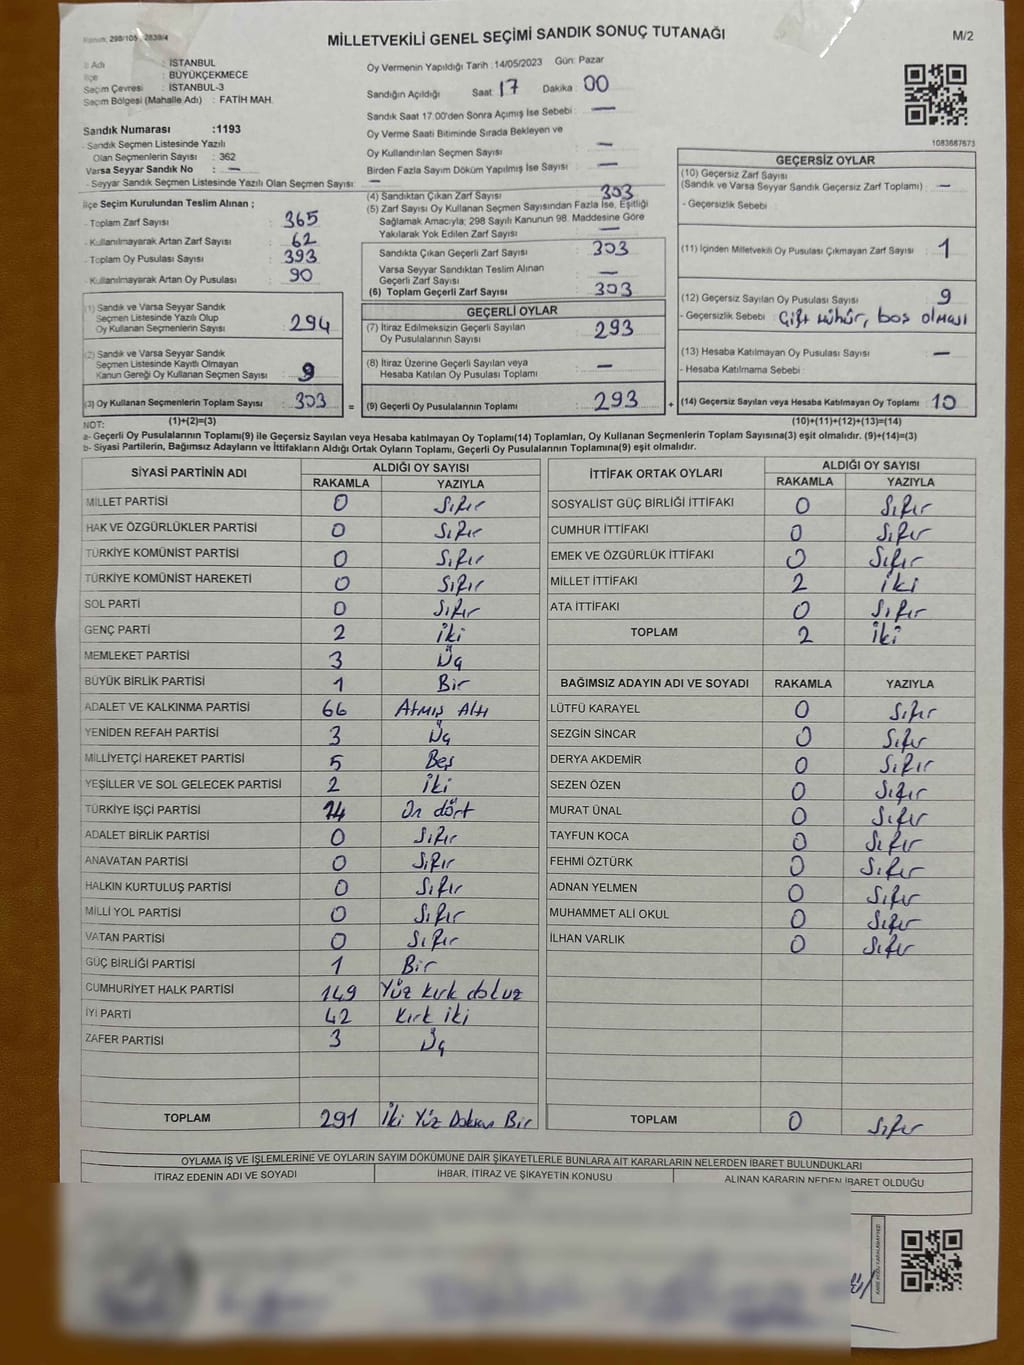 Kanun: 298/105 2839/4
MİLLETVEKİLİ GENEL SEÇİMİ SANDIK SONUÇ TUTANAĞI
M/2
İl Adı : İSTANBUL
İlçe : BÜYÜKÇEKMECE
Seçim Çevresi : İSTANBUL-3
Seçim Bölgesi (Mahalle Adı) : FATİH MAH.
Sandık Numarası :1193
Sandık Seçmen Listesinde Yazılı
Olan Seçmenlerin Sayısı : 362
Varsa Seyyar Sandık No : —
- Seyyar Sandık Seçmen Listesinde Yazılı Olan Seçmen Sayısı: —
İlçe Seçim Kurulundan Teslim Alınan ;
- Toplam Zarf Sayısı : 365
- Kullanılmayarak Artan Zarf Sayısı : 62
- Toplam Oy Pusulası Sayısı : 393
- Kullanılmayarak Artan Oy Pusulası : 90
(1) Sandık ve Varsa Seyyar Sandık
Seçmen Listesinde Yazılı Olup
Oy Kullanan Seçmenlerin Sayısı : 294
(2) Sandık ve Varsa Seyyar Sandık
Seçmen Listesinde Kayıtlı Olmayan
Kanun Gereği Oy Kullanan Seçmen Sayısı : 9
(3) Oy Kullanan Seçmenlerin Toplam Sayısı : 303 =
(1)+(2)=(3)
Oy Vermenin Yapıldığı Tarih :14/05/2023 Gün: Pazar
Sandığın Açıldığı Saat : 17 Dakika : 00
Sandık Saat 17:00'den Sonra Açımış İse Sebebi : —
Oy Verme Saati Bitiminde Sırada Bekleyen ve
Oy Kullandırılan Seçmen Sayısı : —
Birden Fazla Sayım Döküm Yapılmış İse Sayısı : —
(4) Sandıktan Çıkan Zarf Sayısı : 303
(5) Zarf Sayısı Oy Kullanan Seçmen Sayısından Fazla İse, Eşitliği
Sağlamak Amacıyla; 298 Sayılı Kanunun 98. Maddesine Göre
Yakılarak Yok Edilen Zarf Sayısı : —
Sandıkta Çıkan Geçerli Zarf Sayısı : 303
Varsa Seyyar Sandıktan Teslim Alınan
Geçerli Zarf Sayısı : —
(6) Toplam Geçerli Zarf Sayısı : 303
GEÇERLİ OYLAR
(7) İtiraz Edilmeksizin Geçerli Sayılan
Oy Pusulalarının Sayısı : 293
(8) İtiraz Üzerine Geçerli Sayılan veya
Hesaba Katılan Oy Pusulası Toplamı : —
(9) Geçerli Oy Pusulalarının Toplamı : 293 +
1083687673
GEÇERSİZ OYLAR
(10) Geçersiz Zarf Sayısı
(Sandık ve Varsa Seyyar Sandık Geçersiz Zarf Toplamı) : —
- Geçersizlik Sebebi :
(11) İçinden Milletvekili Oy Pusulası Çıkmayan Zarf Sayısı : 1
(12) Geçersiz Sayılan Oy Pusulası Sayısı : 9
- Geçersizlik Sebebi : Çift mühür, boş olması
(13) Hesaba Katılmayan Oy Pusulası Sayısı : —
- Hesaba Katılmama Sebebi :
(14) Geçersiz Sayılan veya Hesaba Katılmayan Oy Toplamı : 10
(10)+(11)+(12)+(13)=(14)
NOT:
a- Geçerli Oy Pusulalarının Toplamı(9) ile Geçersiz Sayılan veya Hesaba katılmayan Oy Toplamı(14) Toplamları, Oy Kullanan Seçmenlerin Toplam Sayısına(3) eşit olmalıdır. (9)+(14)=(3)
b- Siyasi Partilerin, Bağımsız Adayların ve İttifakların Aldığı Ortak Oyların Toplamı, Geçerli Oy Pusulalarının Toplamına(9) eşit olmalıdır.
SİYASİ PARTİNİN ADI ALDIĞI OY SAYISI
RAKAMLA YAZIYLA
MİLLET PARTİSİ 0 Sıfır
HAK VE ÖZGÜRLÜKLER PARTİSİ 0 Sıfır
TÜRKİYE KOMÜNİST PARTİSİ 0 Sıfır
TÜRKİYE KOMÜNİST HAREKETİ 0 Sıfır
SOL PARTİ 0 Sıfır
GENÇ PARTİ 2 İki
MEMLEKET PARTİSİ 3 Üç
BÜYÜK BİRLİK PARTİSİ 1 Bir
ADALET VE KALKINMA PARTİSİ 66 Atmış Altı
YENİDEN REFAH PARTİSİ 3 Üç
MİLLİYETÇİ HAREKET PARTİSİ 5 Beş
YEŞİLLER VE SOL GELECEK PARTİSİ 2 İki
TÜRKİYE İŞÇİ PARTİSİ 14 On dört
ADALET BİRLİK PARTİSİ 0 Sıfır
ANAVATAN PARTİSİ 0 Sıfır
HALKIN KURTULUŞ PARTİSİ 0 Sıfır
MİLLİ YOL PARTİSİ 0 Sıfır
VATAN PARTİSİ 0 Sıfır
GÜÇ BİRLİĞİ PARTİSİ 1 Bir
CUMHURİYET HALK PARTİSİ 149 Yüz kırk dokuz
İYİ PARTİ 42 Kırk iki
ZAFER PARTİSİ 3 Üç
TOPLAM 291 İki Yüz Doksan Bir
İTTİFAK ORTAK OYLARI ALDIĞI OY SAYISI
RAKAMLA YAZIYLA
SOSYALİST GÜÇ BİRLİĞİ İTTİFAKI 0 Sıfır
CUMHUR İTTİFAKI 0 Sıfır
EMEK VE ÖZGÜRLÜK İTTİFAKI 0 Sıfır
MİLLET İTTİFAKI 2 İki
ATA İTTİFAKI 0 Sıfır
TOPLAM 2 İki
BAĞIMSIZ ADAYIN ADI VE SOYADI RAKAMLA YAZIYLA
LÜTFÜ KARAYEL 0 Sıfır
SEZGİN SİNCAR 0 Sıfır
DERYA AKDEMİR 0 Sıfır
SEZEN ÖZEN 0 Sıfır
MURAT ÜNAL 0 Sıfır
TAYFUN KOCA 0 Sıfır
FEHMİ ÖZTÜRK 0 Sıfır
ADNAN YELMEN 0 Sıfır
MUHAMMET ALİ OKUL 0 Sıfır
İLHAN VARLIK 0 Sıfır
TOPLAM 0 Sıfır
OYLAMA İŞ VE İŞLEMLERİNE VE OYLARIN SAYIM DÖKÜMÜNE DAİR ŞİKAYETLERLE BUNLARA AİT KARARLARIN NELERDEN İBARET BULUNDUKLARI
İTİRAZ EDENİN ADI VE SOYADI İHBAR, İTİRAZ VE ŞİKAYETİN KONUSU ALINAN KARARIN NEDEN İBARET OLDUĞU